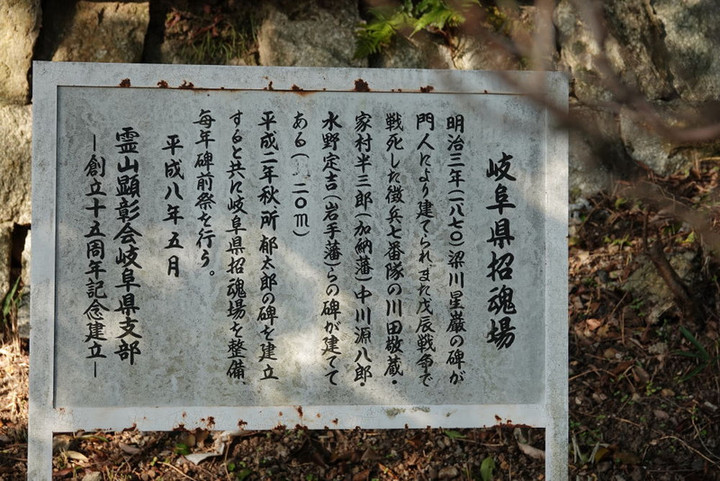 岐阜県招魂場
明治三年(一八七〇)梁川星巌の碑が
門人により建てられ、また戊辰戦争で
戦死した徴兵七番隊の川田敬蔵・
家村半三郎(加納藩)中川源八郎・
水野定吉(岩手藩)らの碑が建てて
ある(二〇m)
平成二年秋所郁太郎の碑を建立
すると共に岐阜県招魂場を整備、
毎年碑前祭を行う。
平成八年五月
霊山顕彰会岐阜県支部
―創立十五周年記念建立―